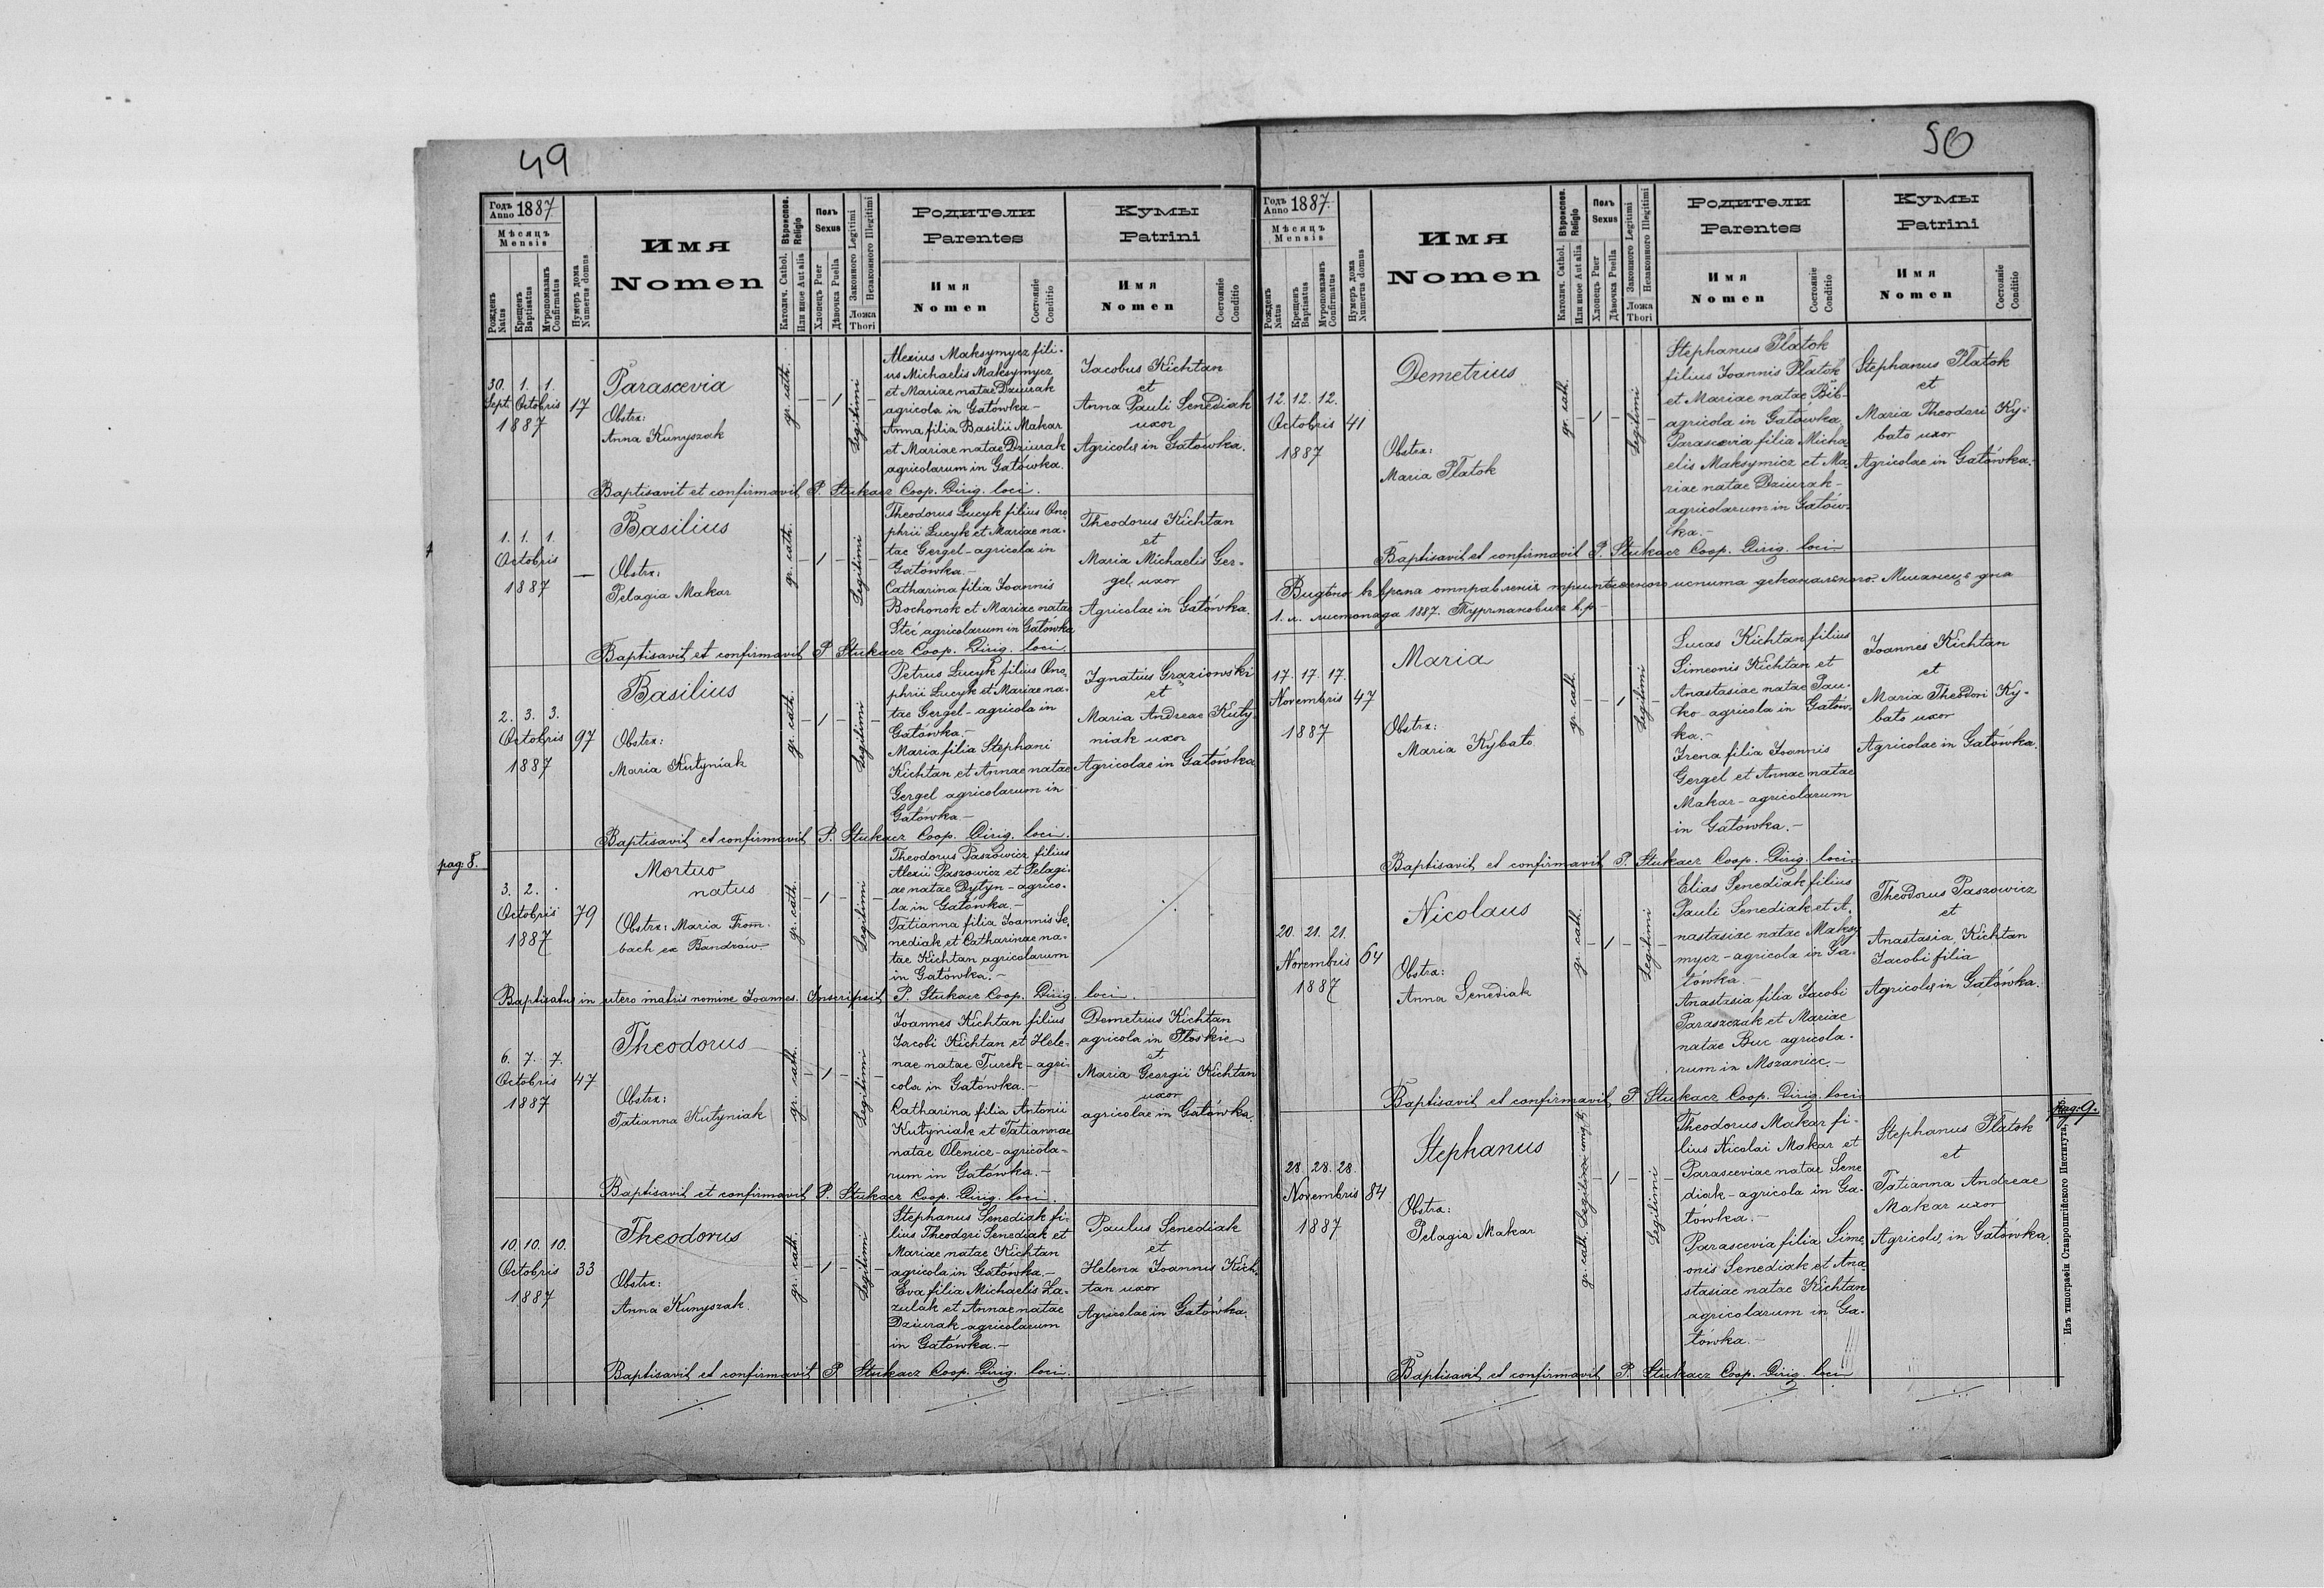 49
Годъ Anno 1887
Мѣсяцъ
Mensis
Рожденъ Natus
Крещенъ Baptisatus
Мѵропомазанъ Confirmatus
Нумеръ дома Numerus domus
Имя
Nomen
Вѣроиспов. Religio
Католич. Cathol.
Или иное Aut alia
Полъ
Sexus
Хлопецъ Puer
Дѣвочка Puella
Законного Legitimi
Незаконного Illegitimi
Ложа
Thori
Родители
Parentes
Имя
Nomen
Состоянiе
Conditio
Кумы
Patrini
Имя
Nomen
Состоянiе
Conditio
30. 1. 1.
Sept. Octobris 17
1887
Parascevia
Obstx:
Anna Kunyszak
gr. cath.
1
Legitimi
Alexius Maksymycz fili-
us Michaelis Maksymycz
et Mariae natae Dziurak
agricola in Gałówka-
Anna filia Basilii Makar
et Mariae natae Dziurak
agricolarum in Gałówka.
Jacobus Kichtan
et
Anna Pauli Senediak
uxor
Agricolae in Gałówka.
Baptisavit et confirmavit P. Stukacz Coop. Dirig. loci.
1. 1. 1.
Octobris
1887
Basilius
Obstx:
Pelagia Makar
gr. cath.
1
Legitimi
Theodorus Lucyk filius Ono-
phrii Lucyk et Mariae na-
tae Gergel - agricola in
Gałówka.-
Catharina filia Joannis
Bochonok et Mariae natae
Steć agricolarum in Gałówka
Theodorus Kichtan
et
Maria Michaelis Ger-
gel uxor
Agricolae in Gałówka.
Baptisavit et confirmavit P. Stukacz Coop. Dirig. loci
2. 3. 3.
Octobris 97
1887
Basilius
Obstx:
Maria Kutyniak
gr. cath.
1
Legitimi
Petrus Lucyk filius Ono-
phrii Lucyk et Mariae na-
tae Gergel - agricola in
Gałówka.-
Maria filia Stephani
Kichtan et Annae natae
Gergel agricolarum in
Gałówka-
Ignatius Graziowski
et
Maria Andreae Kuty
niak uxor
Agricolae in Gałówka
Baptisavit et confirmavit P. Stukacz Coop. Dirig. loci.
pag: 8.
3. 2.
Octobris 79
1887
Mortuo
natus
Obstx: Maria From-
bach ex Bandrów
gr. cath.
1
Legitimi
Theodorus Paszowicz filius
Alexii Paszowicz et Pelagi-
ae natae Dytyn - agrico-
la in Gałówka.-
Tatianna filia Joannis Se-
nediak et Catharinae na-
tae Kichtan agricolarum
in Gałówka.-
Baptisatus in utero matris nomine Joannes. Inscripsit P. Stukacz Coop. Dirig. loci.
6. 7. 7.
Octobris 47
1887
Theodorus
Obstx:
Tatianna Kutyniak
gr. cath.
1
Legitimi
Joannes Kichtan filius
Jacobi Kichtan et Hele-
nae natae Turek - agri-
cola in Gałówka.-
Catharina filia Antonii
Kutyniak et Tatiannae
natae Olenicz - agricola-
rum in Gałówka.-
Demetrius Kichtan
agricola in Płoskie
et
Maria Georgii Kichtan
uxor
agricolae in Gałówka.
Baptisavit et confirmavit P. Stukacz Coop. Dirig. loci.
10. 10. 10.
Octobris 33
1887
Theodorus
Obstx:
Anna Kunyszak.
gr. cath.
1
Legitimi
Stephanus Senediak fi-
lius Theodori Senediak et
Mariae natae Kichtan
agricola in Gałówka.-
Eva filia Michaelis Ła-
zulak et Annae natae
Dziurak agricolarum
in Gałówka.-
Paulus Senediak
et
Helena Joannis Kich-
tan uxor
Agricolae in Gałówka.
Baptisavit et confirmavit P. Stukacz Coop. Dirig. loci.
50
Годъ Anno 1887.
Мѣсяцъ
Mensis
Рожденъ Natus
Крещенъ Baptisatus
Мѵропомазанъ Confirmatus
Нумеръ дома Numerus domus
Имя
Nomen
Вѣроиспов. Religio
Католич. Cathol.
Или иное Aut alia
Полъ
Sexus
Хлопецъ Puer
Дѣвочка Puella
Законного Legitimi
Незаконного Illegitimi
Ложа
Thori
Родители
Parentes
Имя
Nomen
Состоянiе
Conditio
Кумы
Patrini
Имя
Nomen
Состоянiе
Conditio
12. 12. 12.
Octobris 41
1887
Demetrius
Obstx:
Maria Płatok
gr. cath.
1
Legitimi
Stephanus Płatok
filius Joannis Płatok
et Mariae natae Bib-
agricola in Gałówka.
Parascevia filia Micha-
elis Maksymicz et Ma-
riae natae Dziurak-
agricolarum in Gałów-
ka.-
Stephanus Płatok
et
Maria Theodori Ky-
bato uxor
Agricolae in Gałówka.-
Baptisavit et confirmavit P. Stukacz Coop. Dirig. loci
Видѣно въ время отправленія испита деканального. Мшанецъ дна
1. н. листопада 1887. Турчмановичъ в.р.
17. 17. 17.
Novembris 47
1887
Maria
Obstx:
Maria Kybato
gr. cath.
1
Legitimi
Lucas Kichtan filius
Simeonis Kichtan et
Anastasiae natae Pau-
ko - agricola in Gałów-
ka.-
Irena filia Joannis
Gergel et Annae natae
Makar - agricolarum
in Gałówka.-
Joannes Kichtan
et
Maria Theodori Ky-
bato uxor
Agricolae in Gałówka.
Baptisavit et confirmavit P. Stukacz Coop. Dirig. loci
20. 21. 21.
Novembris 64
1887
Nicolaus
Obstx:
Anna Senediak
gr. cath.
1
Legitimi
Elias Senediak filius
Pauli Senediak et A-
nastasiae natae Maksy
mycz - agricola in Ga-
łówka.-
Anastasia filia Jacobi
Paraszczak et Mariae
natae Buc agricola-
rum in Mszaniec.-
Theodorus Paszowicz
et
Anastasia Kichtan
Jacobi filia
Agricolae in Gałówka.
Baptisavit et confirmavit P. Stukacz Coop. Dirig. loci
pag: 9.
28. 28. 28.
Novembris 84
1887
Stephanus
Obstx:
Pelagia Makar
gr. cath.
1
Legitimi
Theodorus Makar fi-
lius Nicolai Makar et
Parasceviae natae Sene
diak - agricola in Ga-
łówka.-
Parascevia filia Sime-
onis Senediak et Ana-
stasiae natae Kichtan
agricolarum in Ga-
łówka.-
Stephanus Płatok
et
Tatianna Andreae
Makar uxor
Agricolae in Gałówka.
Baptisavit et confirmavit P. Stukacz Coop. Dirig. loci
Изъ типографіи Ставропигійского Института